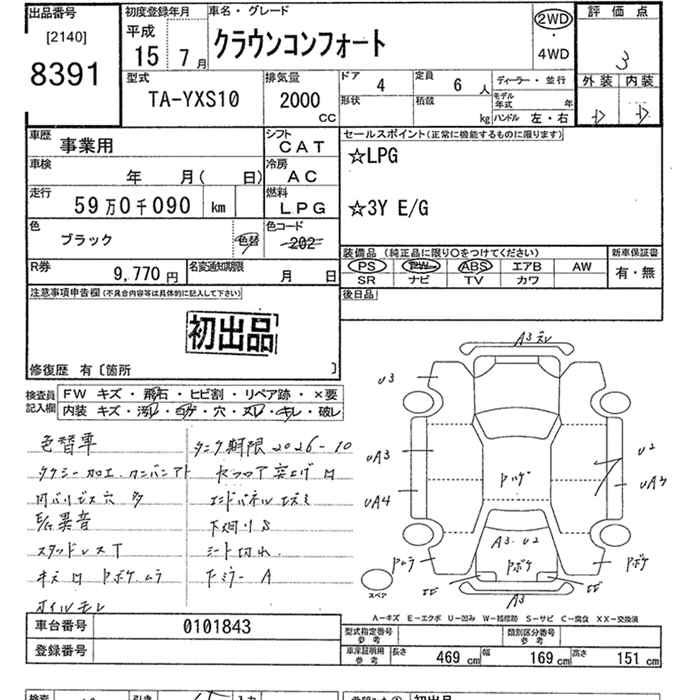 出品番号
[2140]
8391
初度登録年月
平成
15 7月
車名・グレード
クラウンコンフォート
2WD
・
4WD
評価点
3
外装 内装
D D
型式
TA-YXS10
排気量
2000
CC
ドア 4
定員 6 人
形状
積載 kg
ディーラー・並行
モデル年式 年
ハンドル 左・右
車歴
事業用
車検
年 月( 日)
走行
59万0千090 km
色
ブラック
色替
シフト
CAT
冷房
AC
燃料
LPG
色コード
202
R券
9,770円
名変通知期限
月 日
セールスポイント(正常に機能するものに限ります)
☆LPG
☆3Y E/G
装備品 (純正品に限り○をつけてください)
PS PW ABS エアB AW
SR ナビ TV カワ
新車保証書
有・無
後日品
注意事項申告欄(不具合内容等は具体的に記入して下さい)
初出品
修復歴 有〔箇所 〕
検査員記入欄
FW キズ・飛石・ヒビ割・リペア跡・×要
内装 キズ・汚レ・コゲ・穴・スレ・キレ・破レ
色替車
タンク期限 2026-10
タクシー加工.コンパンアト
内バリビス穴 多
エンドパネル エズミ
E/G異音
下廻りS
スタッドレスT
シート切れ.
キズ凹 Pボケ ムラ
FミラーA
オイルモレ
A3 ズレ
U3
UA3
UA4
Pハゲ
U2
UA3
A3・U2
Pボケ
Pムラ
Pボケ
A3
スペア
A-キズ E-エクボ U-凹み W-補修跡 S-サビ C-腐食 XX-交換済
車台番号 0101843
登録番号
型式指定番号
参考
類別区分番号
参考
車庫証明用
参考
長さ 469 cm
幅 169 cm
高さ 151 cm
初出品